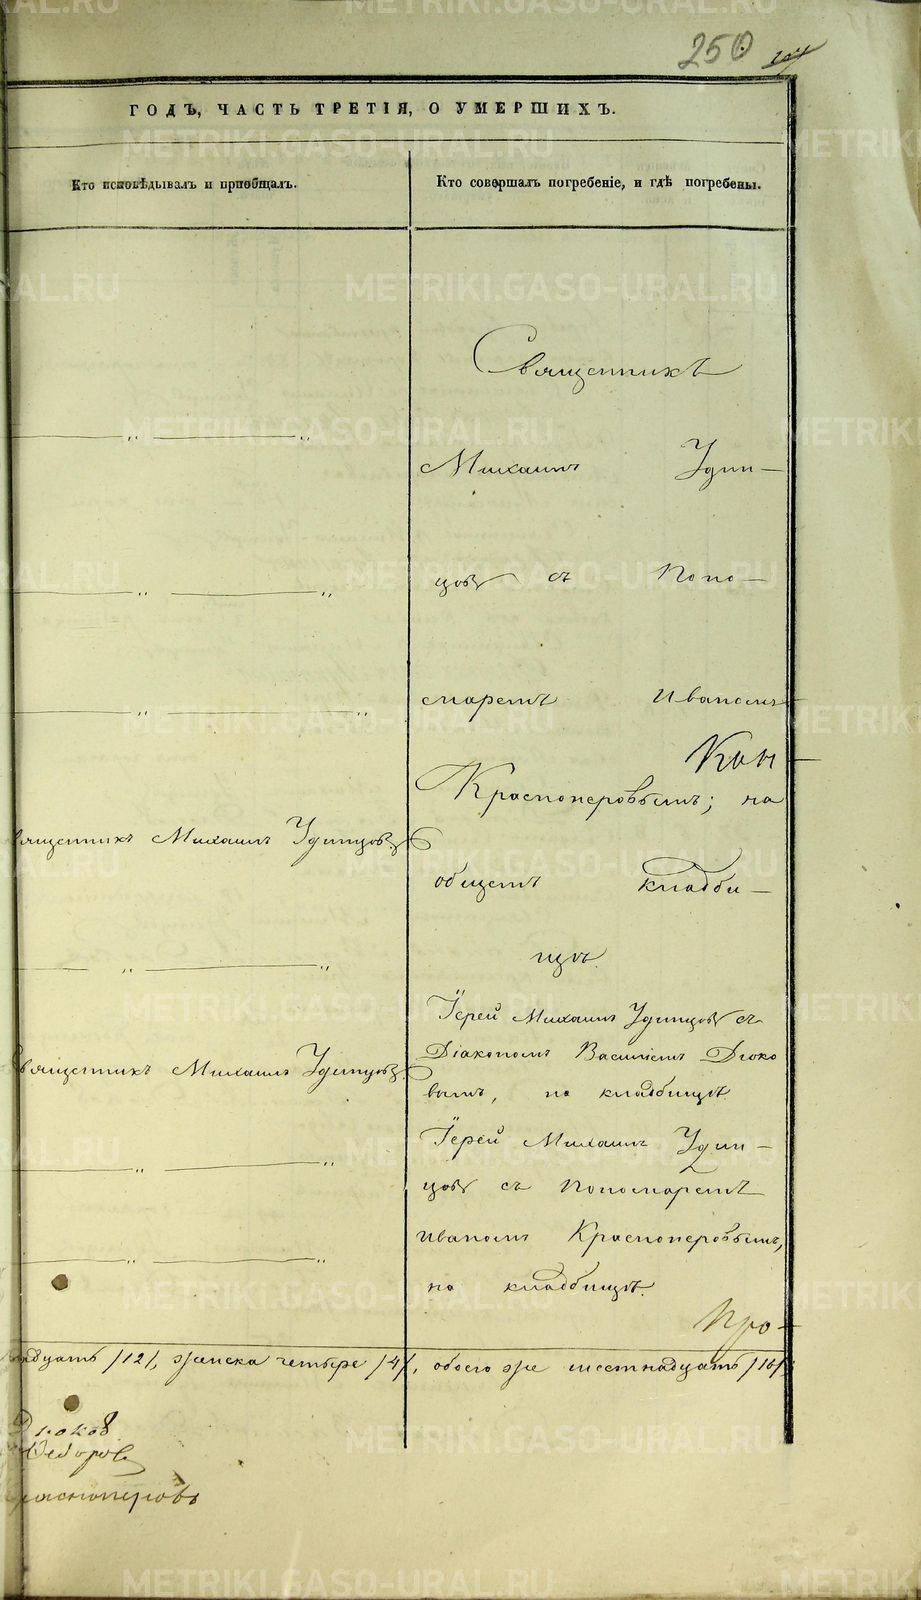 250
ГОДЪ, ЧАСТЬ ТРЕТІЯ, О УМЕРШИХЪ.
Кто исповѣдывалъ и пріобщалъ.
Кто совершалъ погребеніе, и гдѣ погребены.
Священникъ
Михаилъ Удин-
цовъ съ Поно-
маремъ Иваномъ
Кон
Красноперовымъ; на
общемъ кладби-
щѣ.
вященникъ Михаилъ Удинцовъ
Іерей Михаилъ Удинцовъ съ
Діакономъ Василіемъ Дюко
вымъ, на кладбищѣ.
вященникъ Михаилъ Удинцовъ.
Іерей Михаилъ Удин-
цовъ съ Пономаремъ
Иваномъ Красноперовымъ,
на кладбищѣ.
Про-
надцать /12/, женска четыре /4/, обоего же шестнадцать /16/
Дюковъ
Федоров
расноперовъ
METRIKI.GASO-URAL.RU